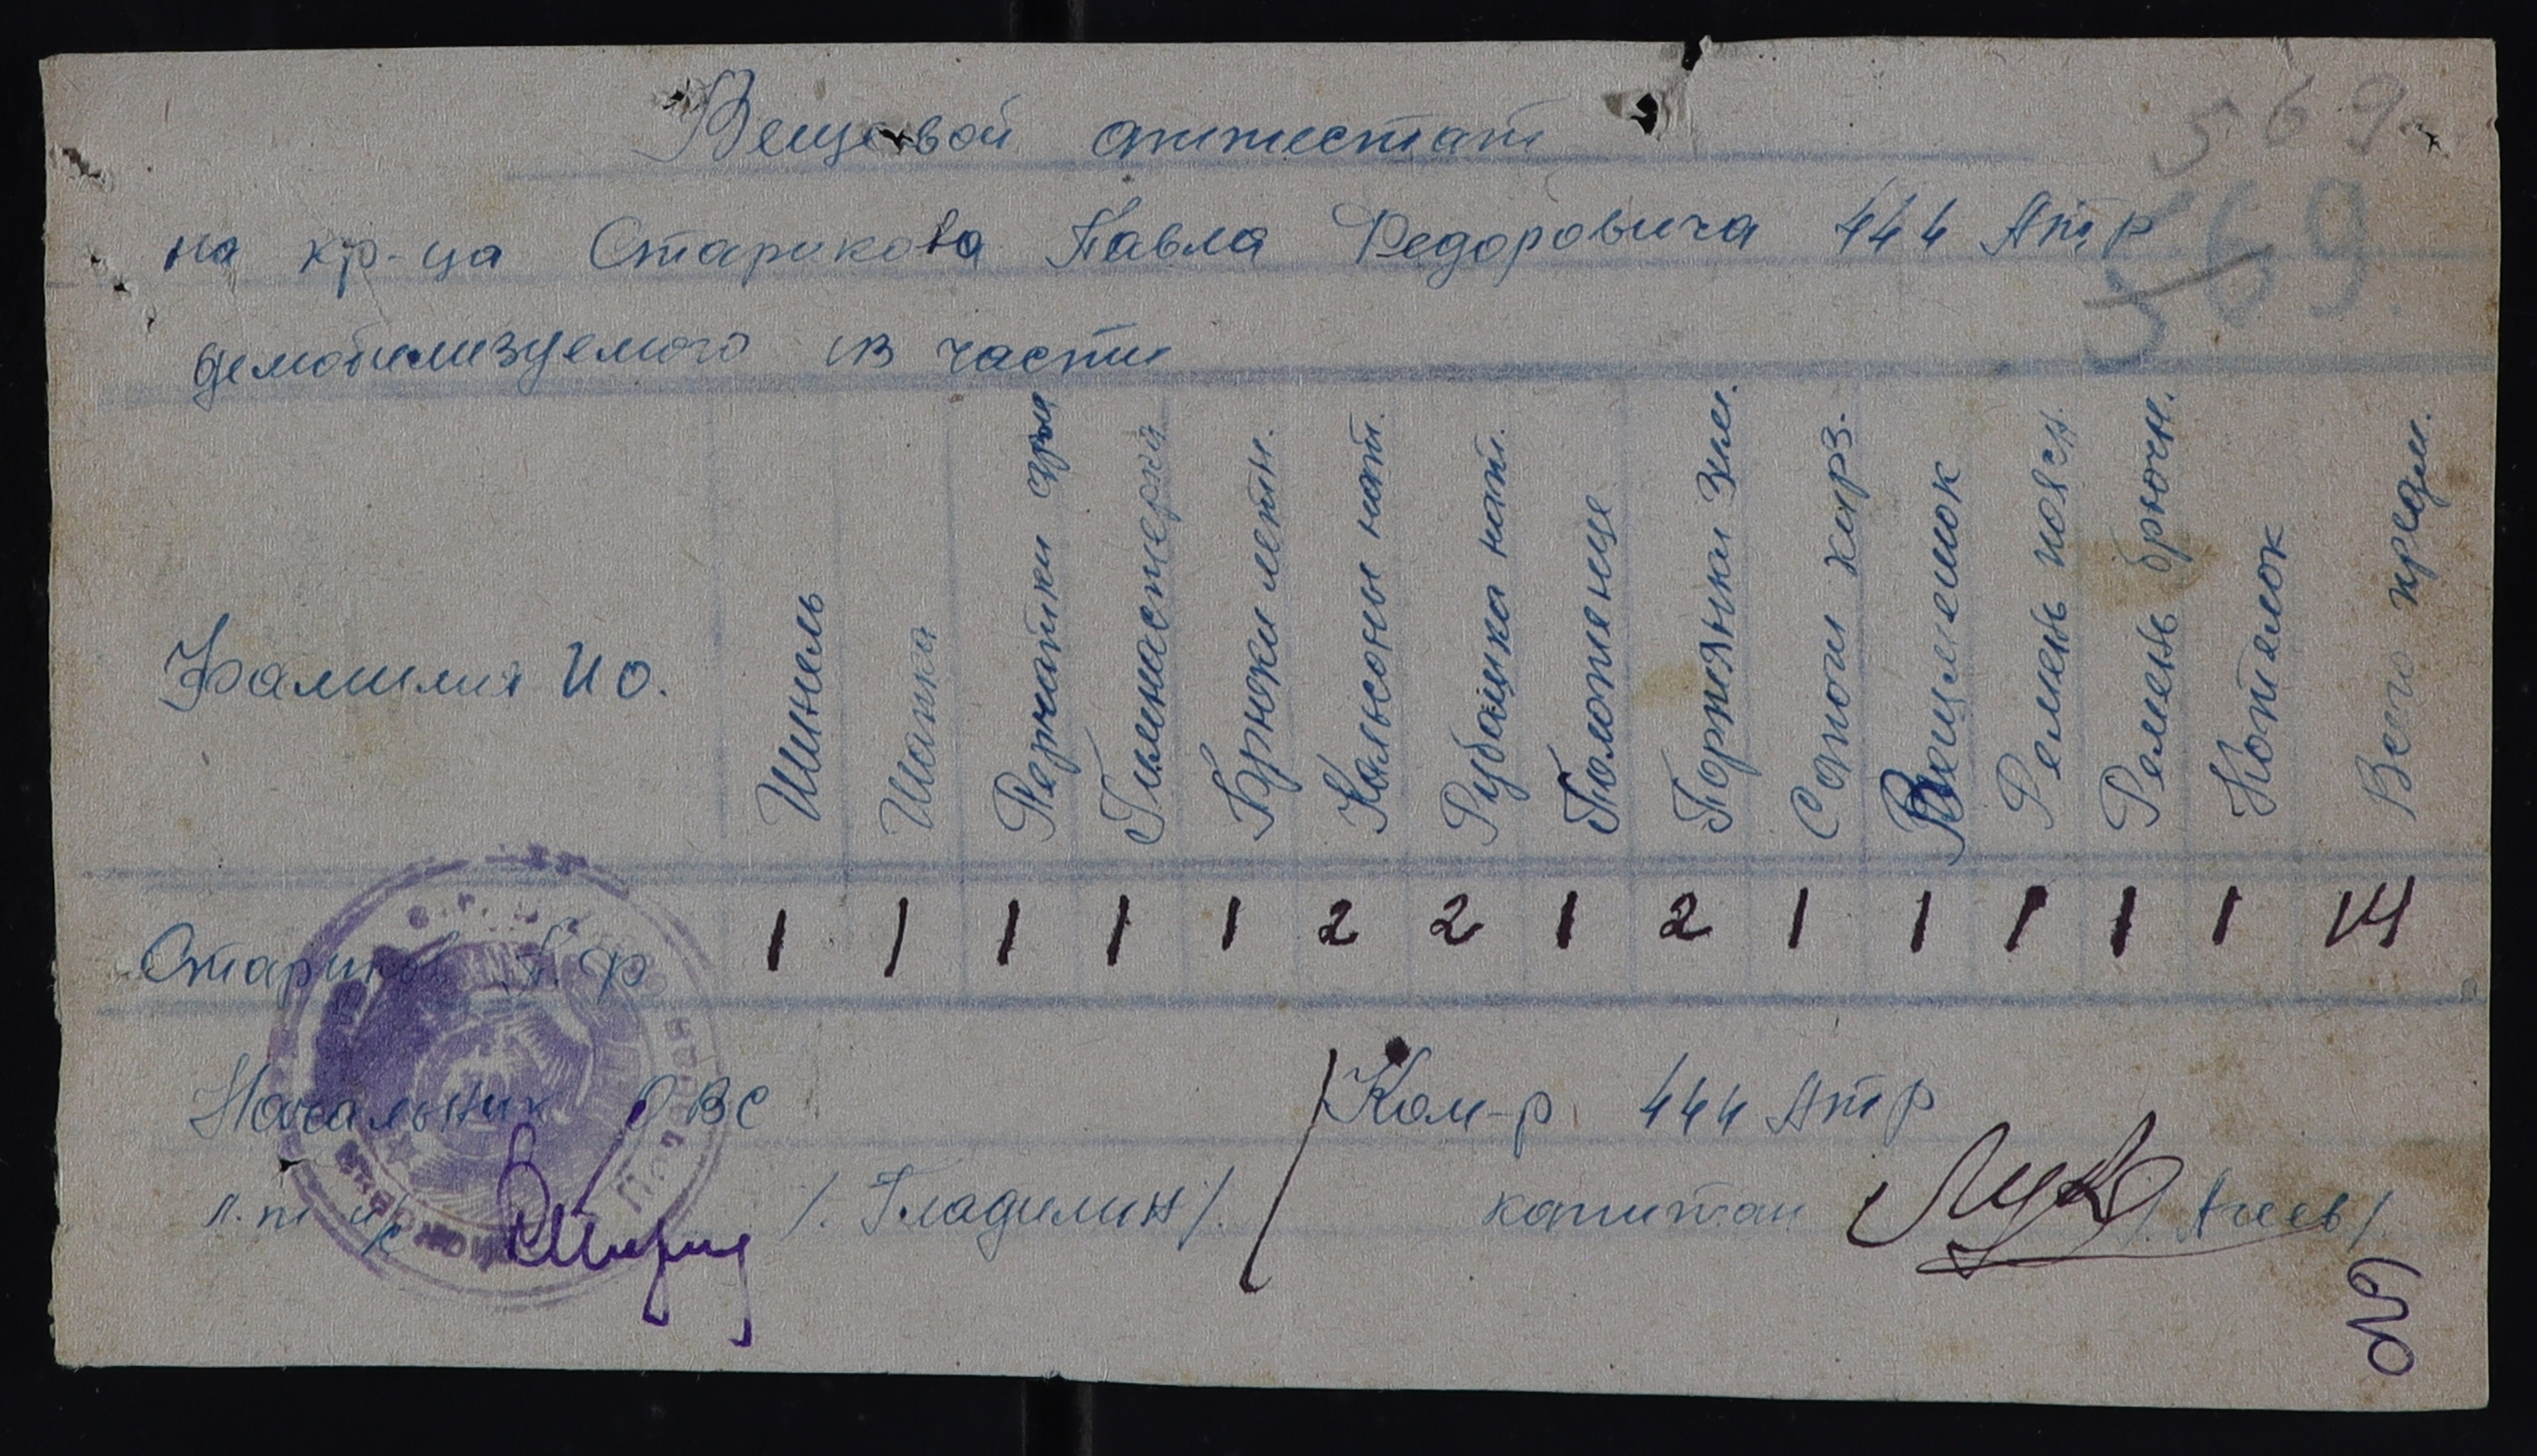 569
Вещевой аттестат
на кр-ца Старикова Павла Федоровича 444 Атр
569
демобилизуемого из части
Фамилия И О.
Шинель
Шапка
Перчатки
Гимнастерка
Брюки летн.
Кальсоны нат.
Рубашка нат.
Полотенце
Портянки зим.
Сапоги кирз.
Вещмешок
Ремень поясн.
Ремень брючн.
Котелок
Всего предм.
Стариков П. Ф 1 1 1 1 1 2 2 1 2 1 1 1 1 1 14
Начальник ОВС
л. т /. Гладилин/.
Ком-р 444 Атр
капитан /. Агеев/.